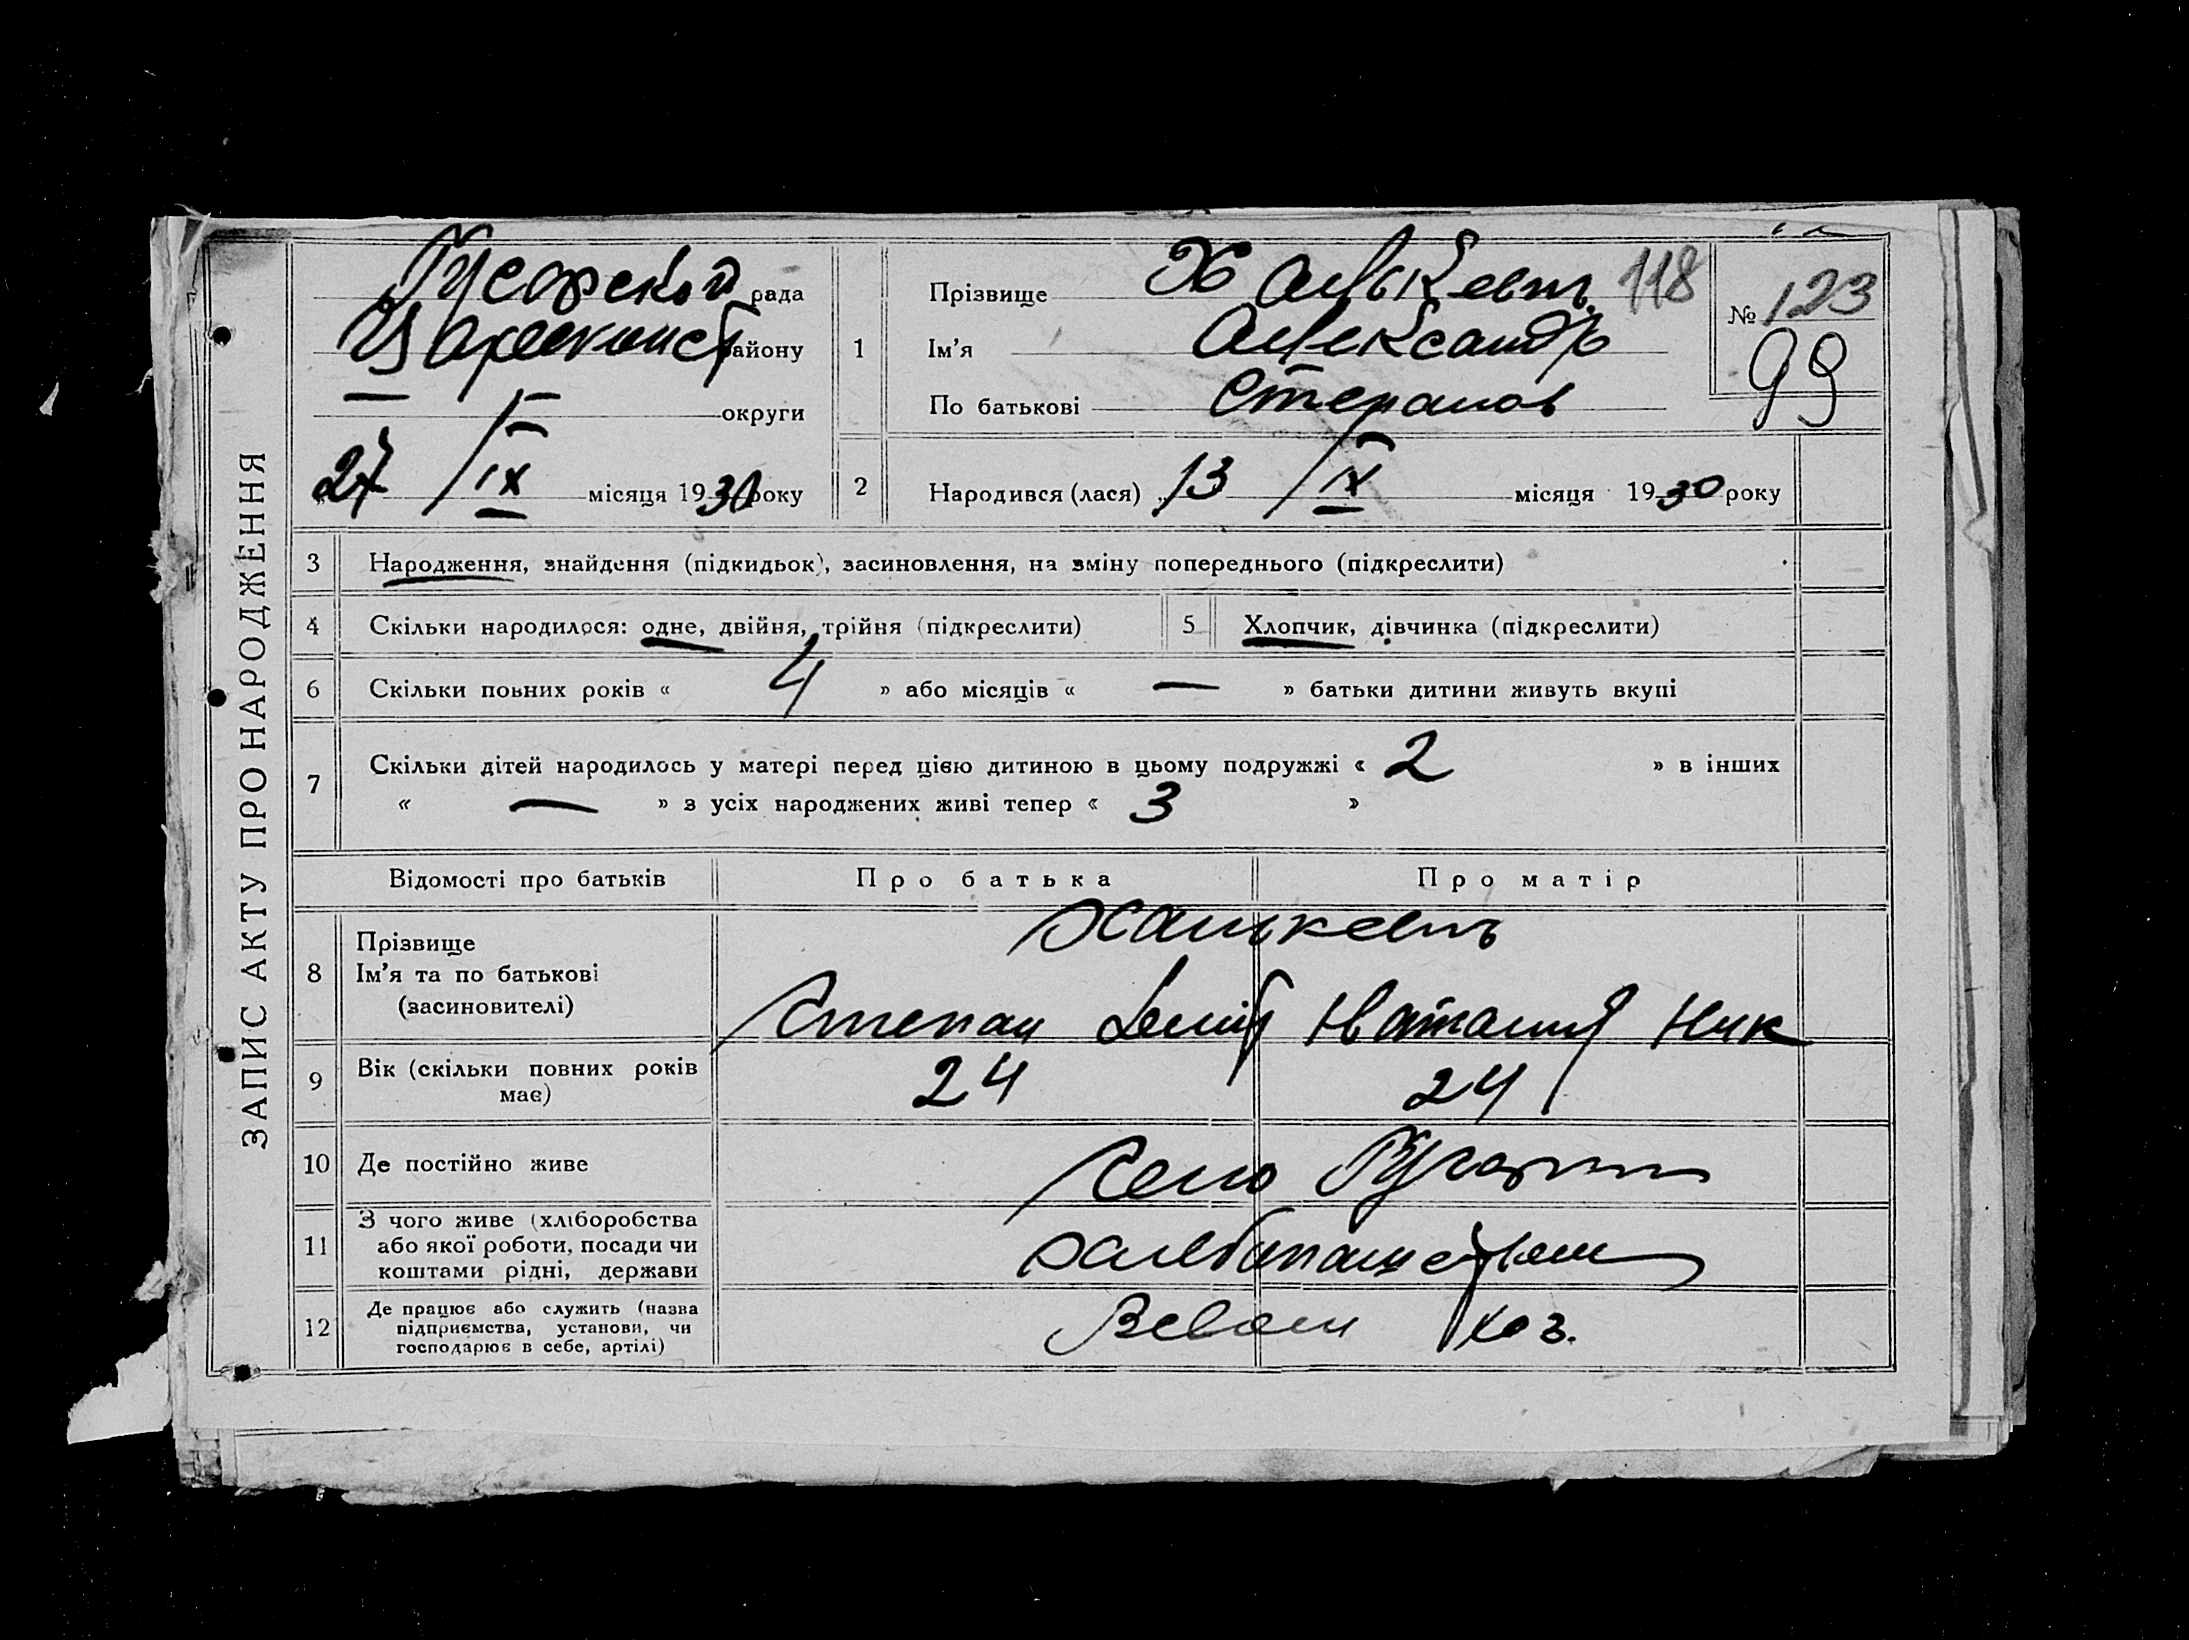 ЗАПИС АКТУ ПРО НАРОДЖЕННЯ
рада
району
округи
27 / IX місяця 1930 року
1 Прізвище 118
Ім’я Александр
По батькові Степанов
№ 123
99
2 Народився (лася) 13 / IX місяця 1930 року
3 Народження, знайдення (підкидьок), засиновлення, на зміну попереднього (підкреслити)
4 Скільки народилося: одне, двійня, трійня (підкреслити) 5 Хлопчик, дівчинка (підкреслити)
6 Скільки повних років « 4 » або місяців « — » батьки дитини живуть вкупі
7 Скільки дітей народилось у матері перед цією дитиною в цьому подружжі « 2 » в інших
« — » з усіх народжених живі тепер « 3 »
Відомості про батьків Про батька Про матір
8 Прізвище
Ім’я та по батькові Степан Наталия Ник
(засиновителі)
9 Вік (скільки повних років має) 24 24
10 Де постійно живе Село
11 З чого живе (хліборобства
або якої роботи, посади чи
коштами рідні, держави
12 Де працює або служить (назва
підприємства, установи, чи
господарює в себе, артілі) хоз.